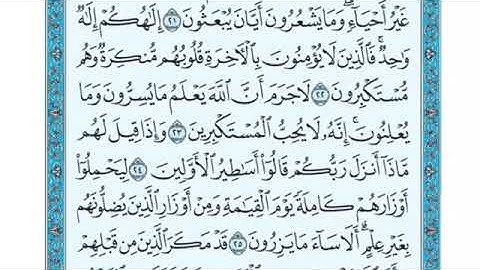 غَيْرُ أَحْيَآءٍۖ وَمَا يَشْعُرُونَ أَيَّانَ يُبْعَثُونَ ٢١ إِلَٰهُكُمْ إِلَٰهٌ
وَٰحِدٌۚ فَٱلَّذِينَ لَا يُؤْمِنُونَ بِٱلْءَاخِرَةِ قُلُوبُهُم مُّنكِرَةٌ وَهُم
مُّسْتَكْبِرُونَ ٢٢ لَا جَرَمَ أَنَّ ٱللَّهَ يَعْلَمُ مَا يُسِرُّونَ وَمَا
يُعْلِنُونَۚ إِنَّهُۥ لَا يُحِبُّ ٱلْمُسْتَكْبِرِينَ ٢٣ وَإِذَا قِيلَ لَهُم
مَّاذَآ أَنزَلَ رَبُّكُمْ قَالُوٓا۟ أَسَٰطِيرُ ٱلْأَوَّلِينَ ٢٤ لِيَحْمِلُوٓا۟
أَوْزَارَهُمْ كَامِلَةً يَوْمَ ٱلْقِيَٰمَةِ وَمِنْ أَوْزَارِ ٱلَّذِينَ يُضِلُّونَهُم
بِغَيْرِ عِلْمٍۗ أَلَا سَآءَ مَا يَزِرُونَ ٢٥ قَدْ مَكَرَ ٱلَّذِينَ مِن قَبْلِهِمْ